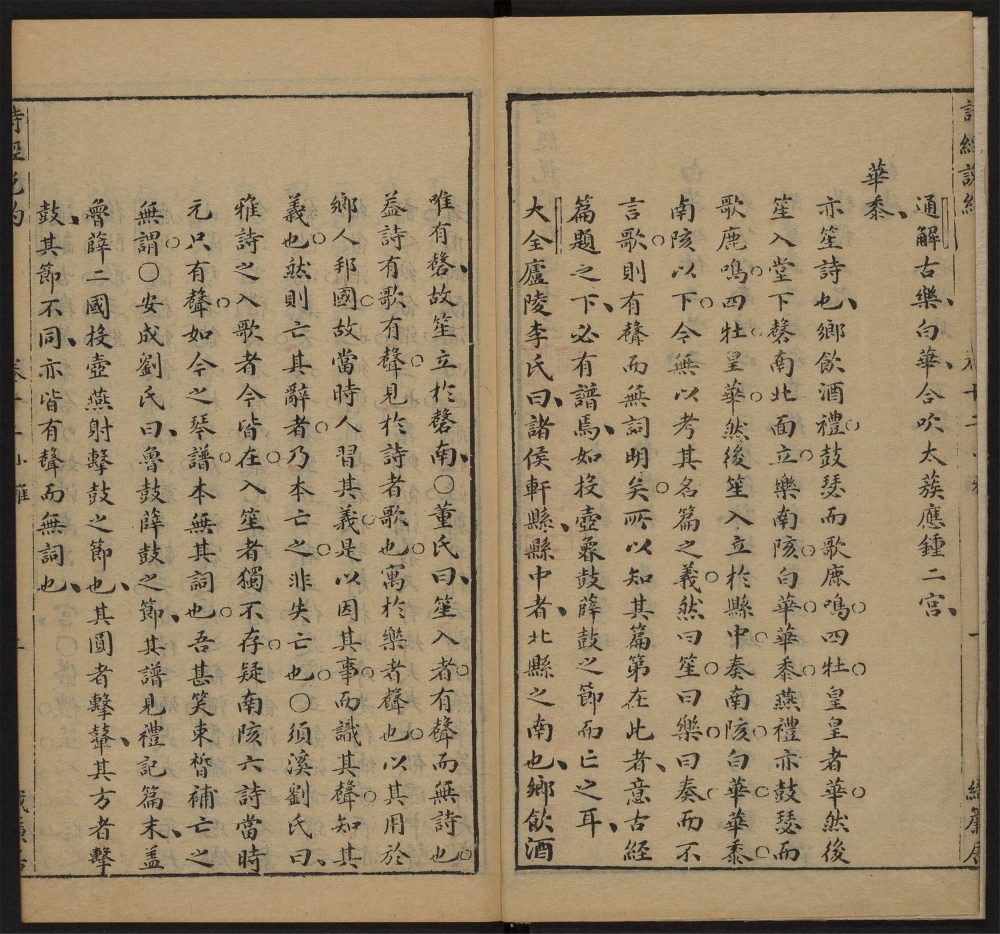 通解古樂白華合吹太蔟應鍾二宮
華黍
亦笙詩也鄉飲酒禮鼓瑟而歌鹿鳴四牡皇皇者華然後
笙入堂下磬南北面立樂南陔白華華黍燕禮亦鼓瑟而
歌鹿鳴四牡皇華然後笙入立於縣中奏南陔白華華黍
南陔以下今無以考其名篇之義然曰笙曰樂曰奏而不
言歌則有聲而無詞明矣所以知其篇第在此者意古經
篇題之下必有譜焉如投壺魯鼓薛鼓之節而亡之耳
大全廬陵李氏曰諸侯軒縣縣中者北縣之南也鄉飲酒
唯有磬故笙立於磬南〇董氏曰笙入者有聲而無詩也
葢詩有歌有聲見於詩者歌也寓於樂者聲也以其用於
鄉人邦國故當時人習其義是以因其事而識其聲知其
義也然則亡其辭者乃本亡之非失亡也〇須溪劉氏曰
雅詩之入歌者今皆在入笙者獨不存疑南陔六詩當時
元只有聲如今之琴譜本無其詞也吾甚笑束晳補亡之
無謂〇安成劉氏曰魯鼓薛鼓之節其譜見禮記篇末葢
魯薛二國投壺燕射擊鼓之節也其圓者擊鼙其方者擊
鼓其節不同亦皆有聲而無詞也